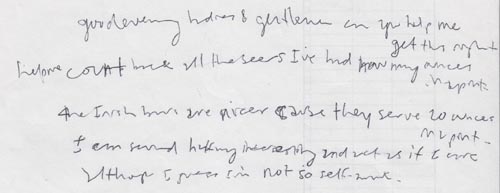 good evening ladies & gentlemen can you help me
get this right
help me count back all the beers I've had how many ounces
in a pint.
the Irish bars are nicer cause they serve 20 ounces
in a pint.
I am and act as if I care
although I guess I'm not so self